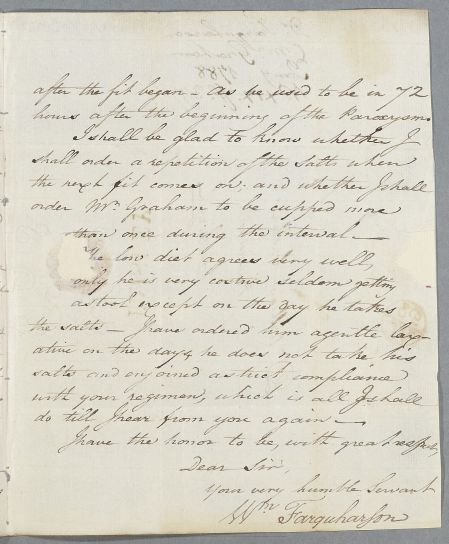 after the fit began – as we used to be in 72
hours after the beginning of the Paroxysm.
I shall be glad to know whether I
shall order a repetition of the salts when
the next fit comes on; and whether I shall
order Mr. Graham to be cupped more
than once during the interval –
The low diet agrees very well,
only he is very costive seldom getting
a stool except on the day he takes
the salts – I have ordered him a gentle lax-
ative on the days he does not take his
salts and enjoined a strict compliance
with your regimen, which is all I shall
do till I hear from you again –
I have the honor to be, with great respect,
Dear Sir,
Your very humble Servant
Wm Farquharson